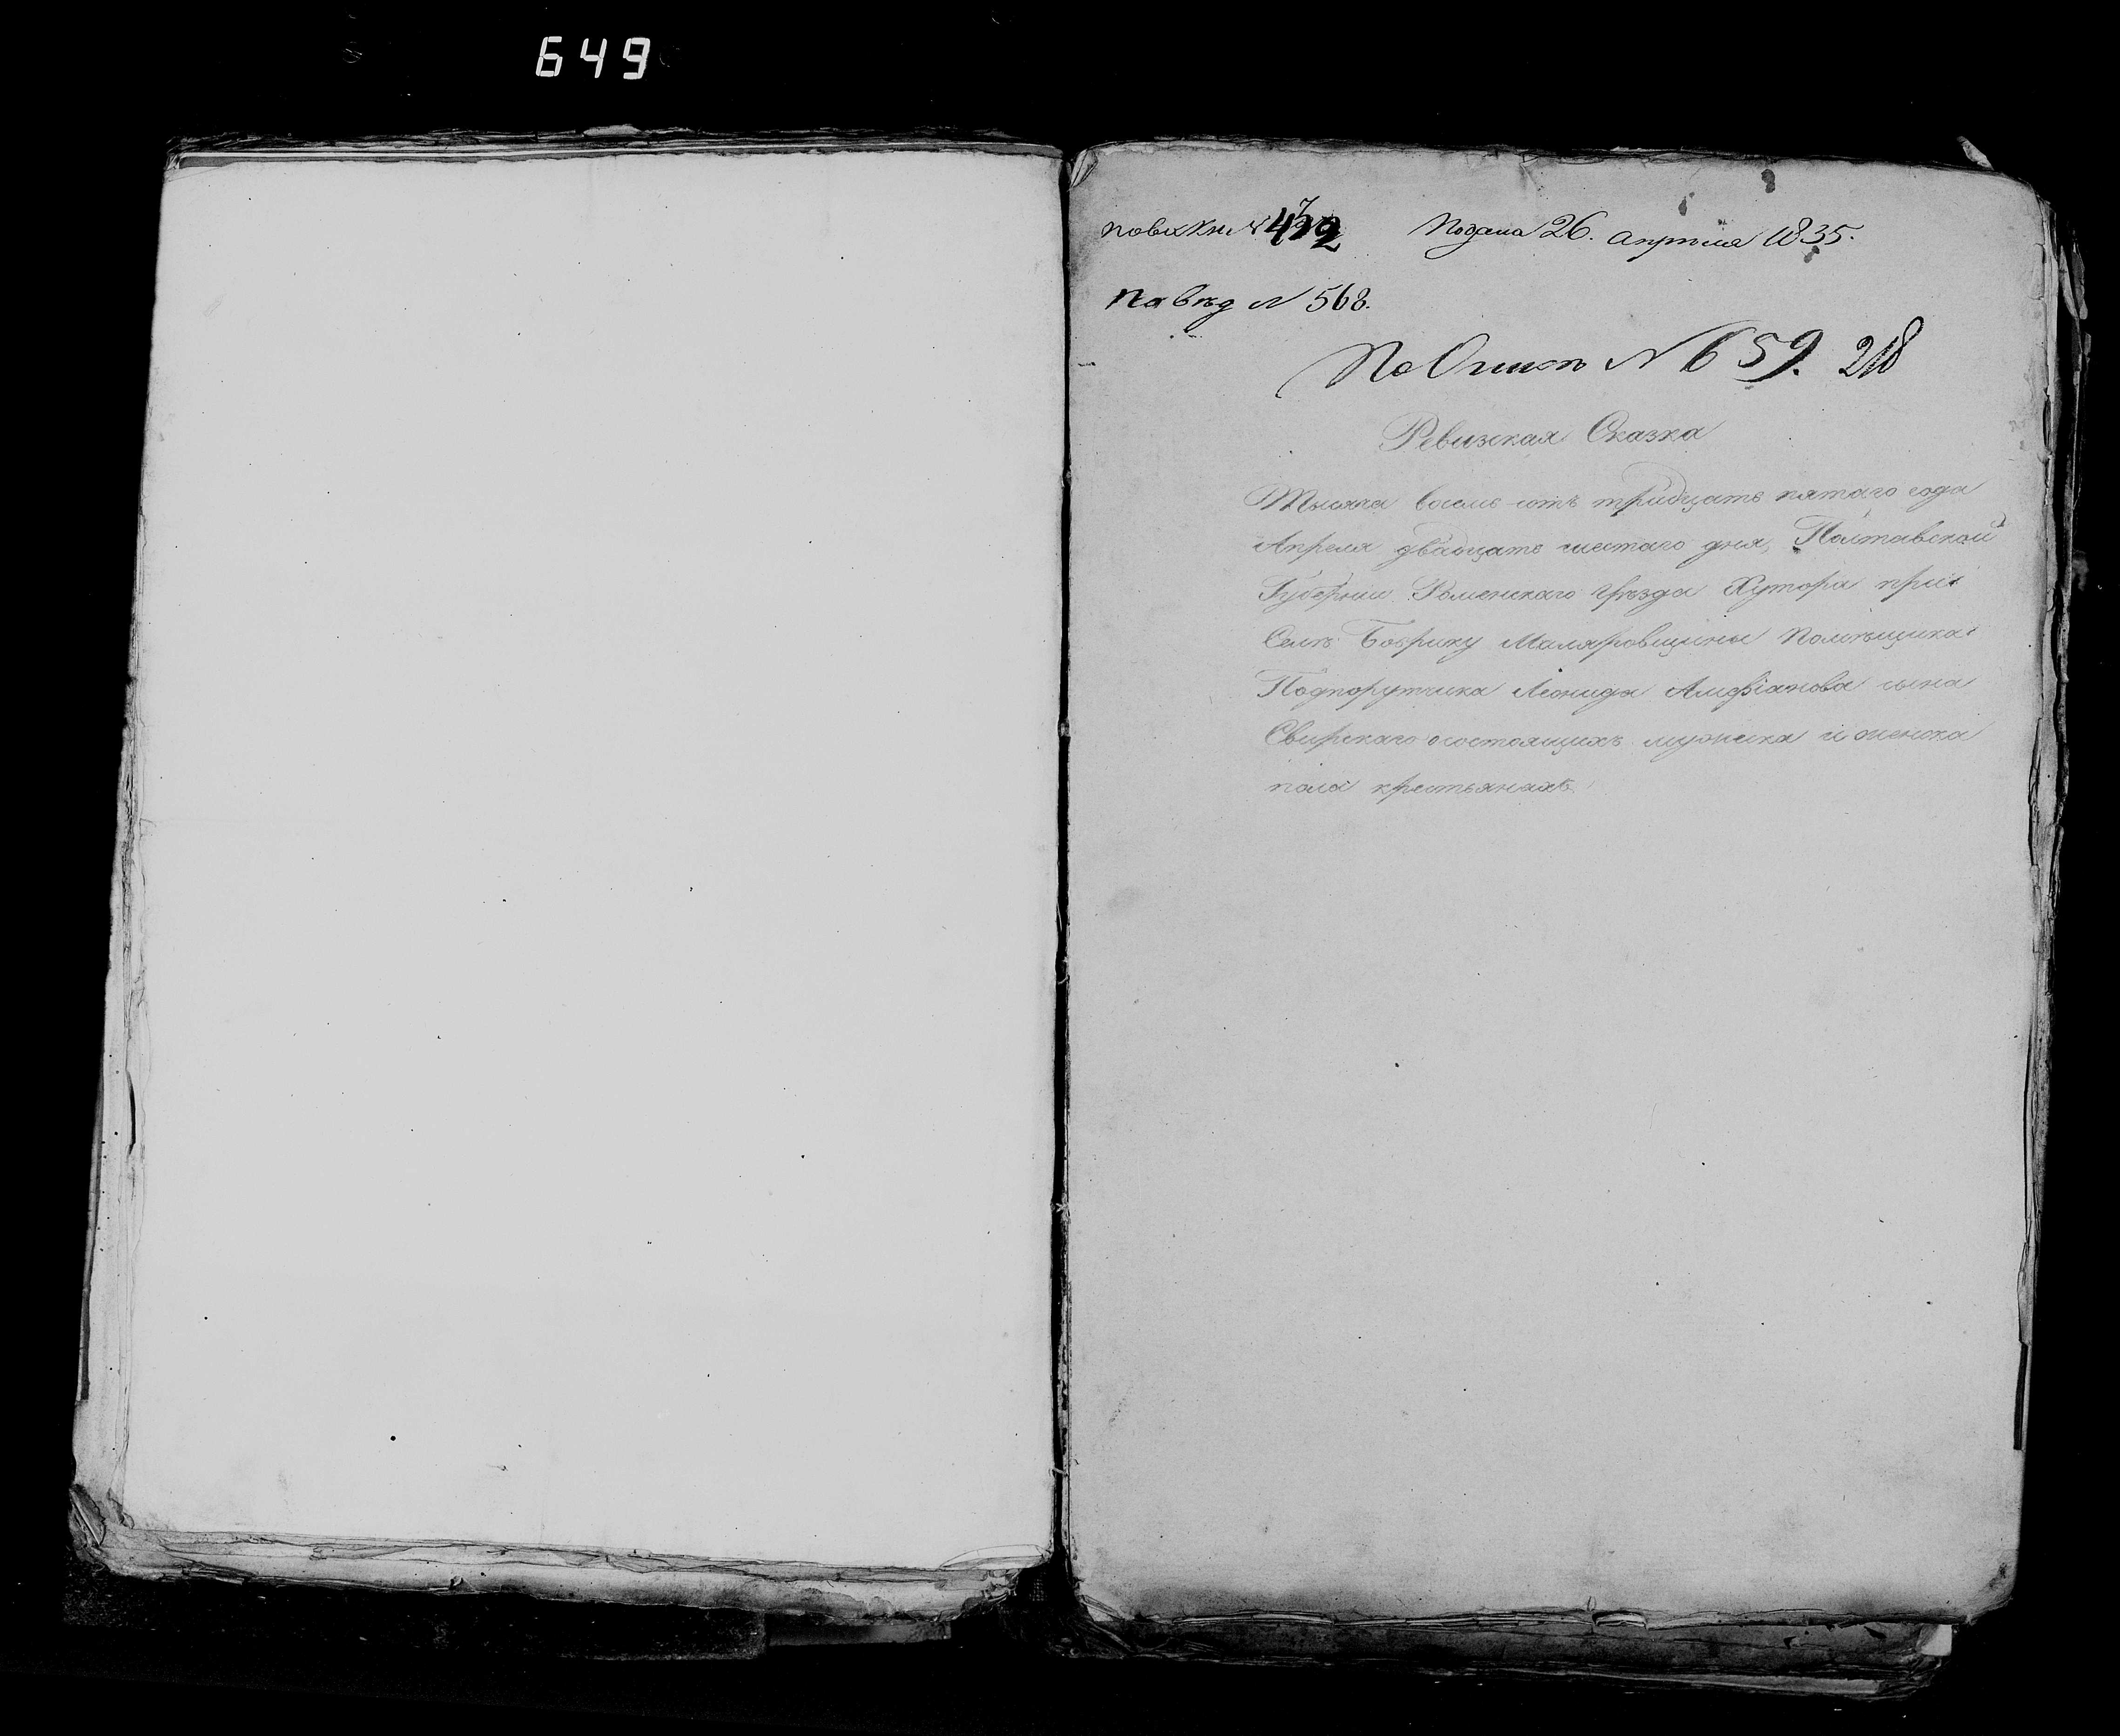 649
по вх Кн. № 432 Подана 26. Апреля 1835.
По вѣд № 568.
По Описи № 659. 218
Ревизская Сказка
Тысяча восемь сотъ тридцать пятаго года
Апреля двадцать шестаго дня, Полтавской
Губерніи Роменскаго Уѣзда Хутора при
Селѣ Бобрику Маляровщины помѣщика
Подпорутчика Леонида Амфіанова сына
Свирскаго о состоящихъ мужеска и женска
пола крестьянахъ.